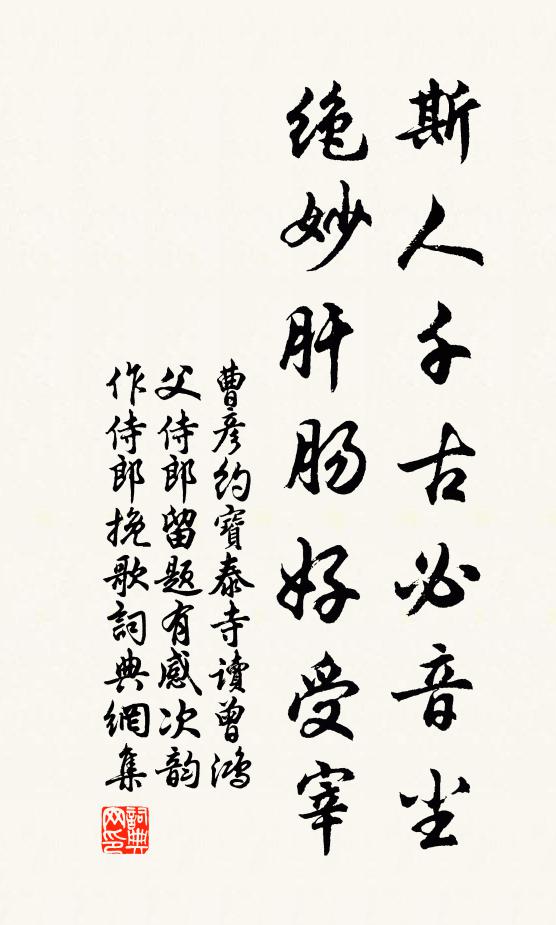 斯人千古必音尘
绝妙肝肠好受宰
曹彦约寶泰寺讀曾鴻
父侍郎留题有感次韵
作侍郎挽歌詞典網集
詞典网印